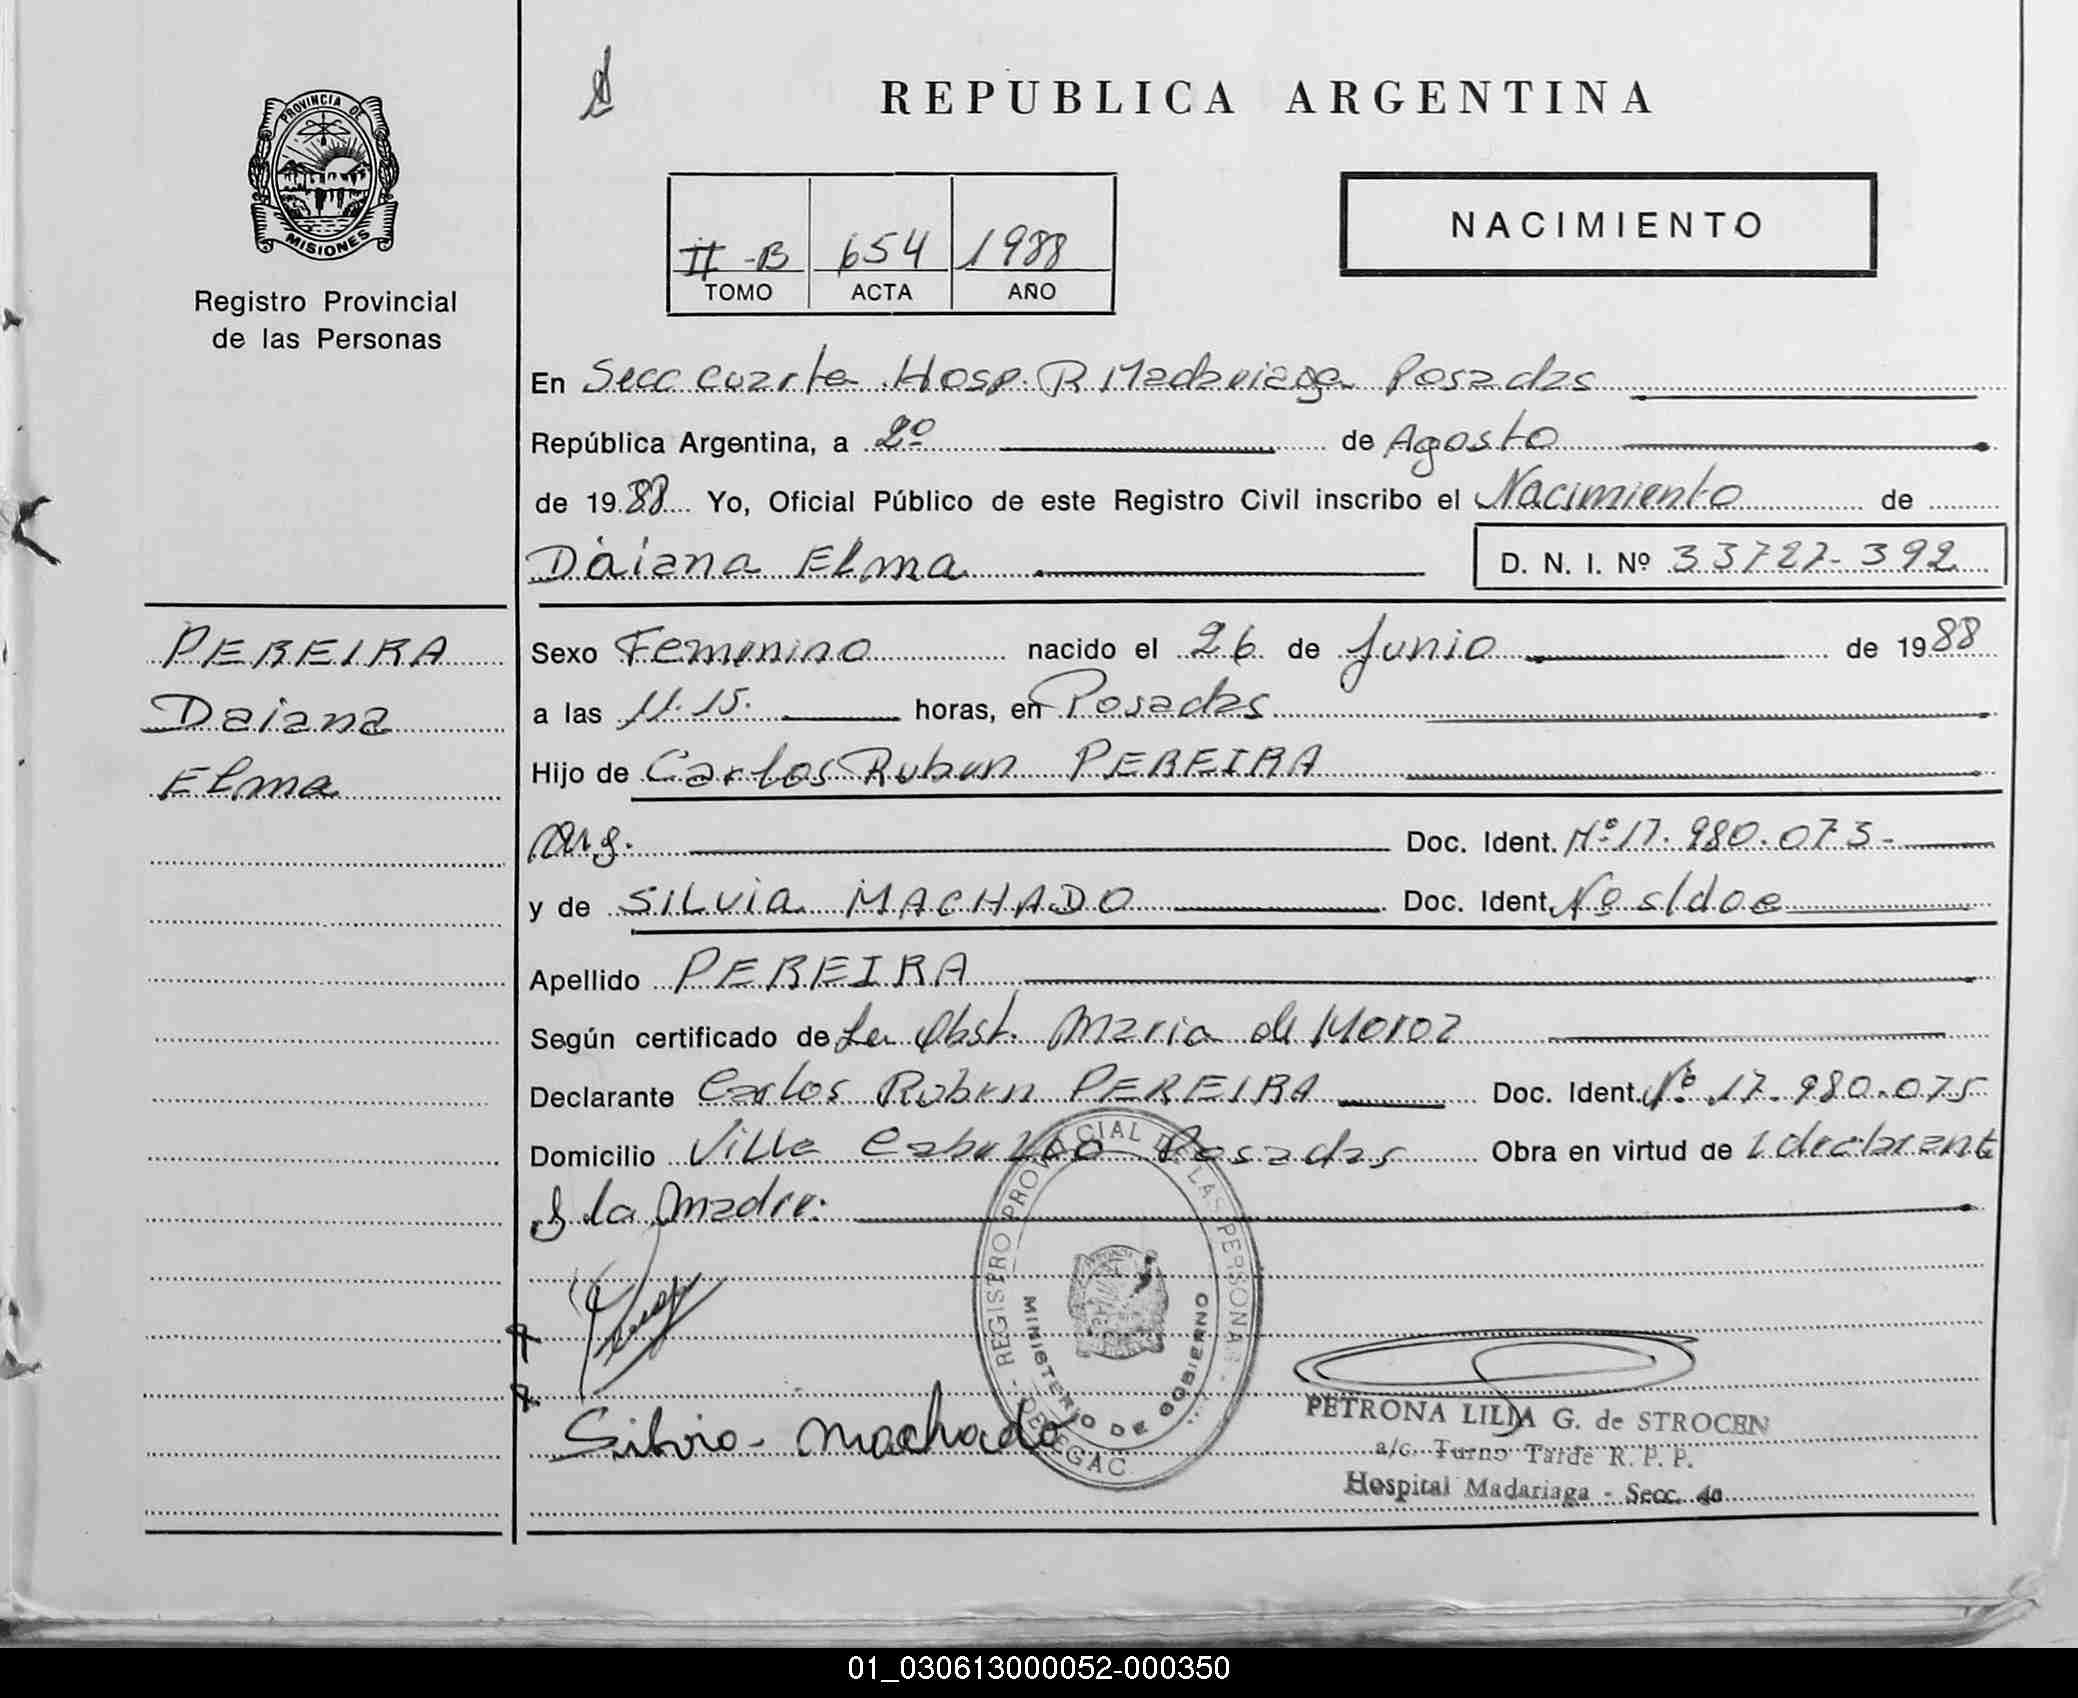 PROVINCIA DE
MISIONES
Registro Provincial
de las Personas
REPUBLICA ARGENTINA
II-B 654 1988
TOMO ACTA AÑO
NACIMIENTO
En Secc cuarta Hosp. R Madariaga Posadas
República Argentina, a 2º de Agosto
de 1988 Yo, Oficial Público de este Registro Civil inscribo el Nacimiento de
Daiana Elma D. N. I. Nº 33727-392
PEREIRA
Daiana
Elma
Sexo Femenino nacido el 26 de Junio de 1988
a las 11.15. horas, en Posadas
Hijo de Carlos Ruben PEREIRA
Arg. Doc. Ident. Nº 17.980.075-
y de SILVIA MACHADO Doc. Ident. Nº s/doc
Apellido PEREIRA
Según certificado de La Obst. Maria de Moroz
Declarante Carlos Ruben PEREIRA Doc. Ident. Nº 17.980.075
Domicilio Villa Posadas Obra en virtud de declarant
y la madre.
REGISTRO PROVINCIAL DE LAS PERSONAS
MINISTERIO DE GOBIERNO
Silvia - machado
PETRONA LILIA G. de STROCEN
a/c. Turno Tarde R. P. P.
Hospital Madariaga - Secc. 4a
01_030613000052-000350